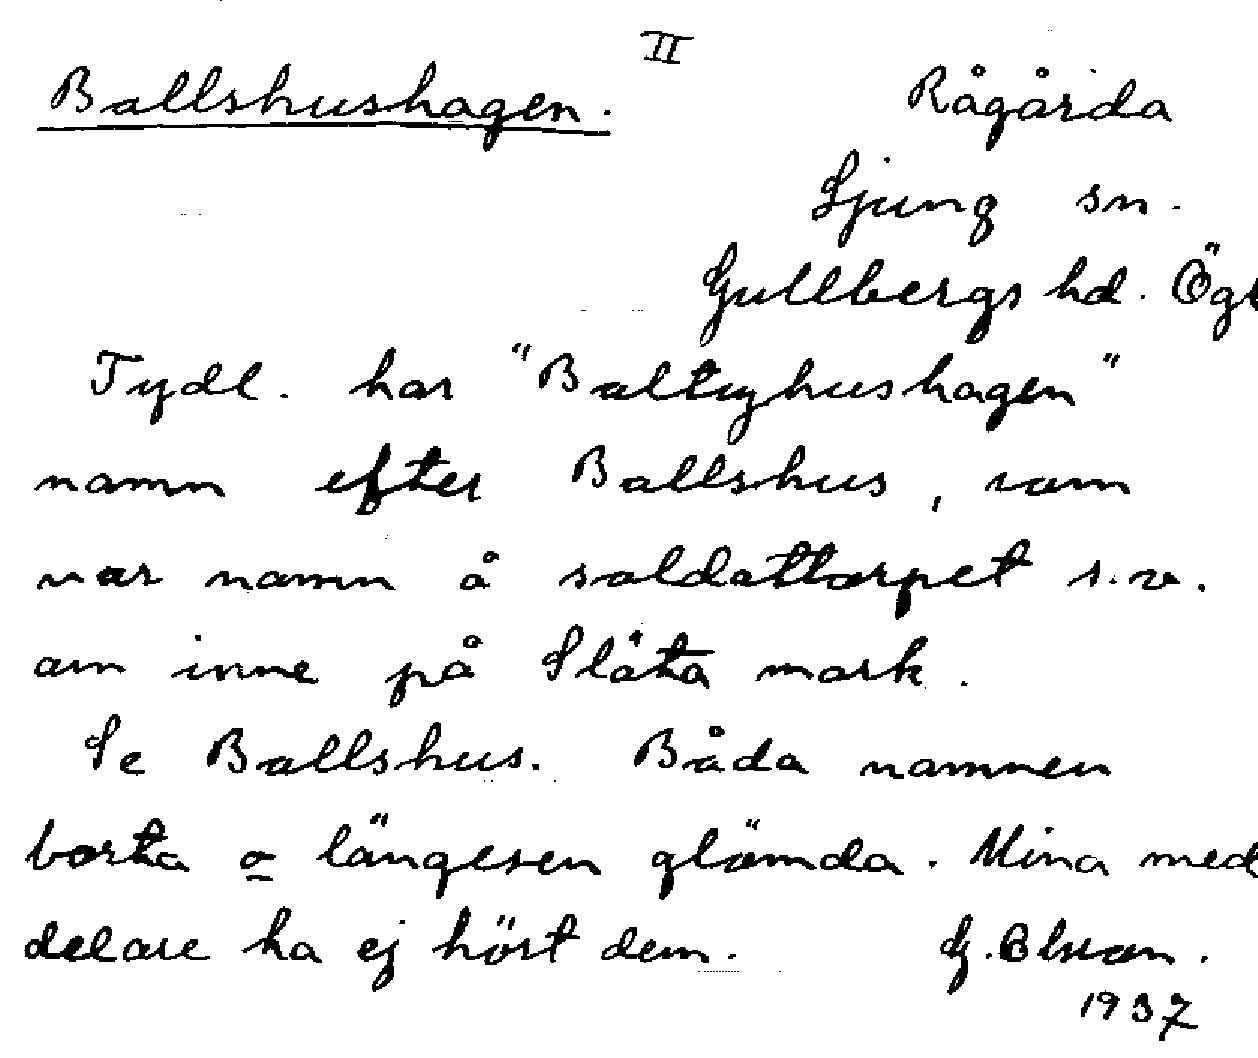 II
Ballshushagen. Rågårda
Ljung sn.
Gullbergs hd. Ögl
Tydl. har "Baltzhushagen"
namn efter Ballshus, som
var namn å soldattorpet s.v.
om inne på Släta mark.
Se Ballshus. Båda namnen
borta o längesen glömda. Mina med
delare ha ej hört dem. G. Olson.
1937